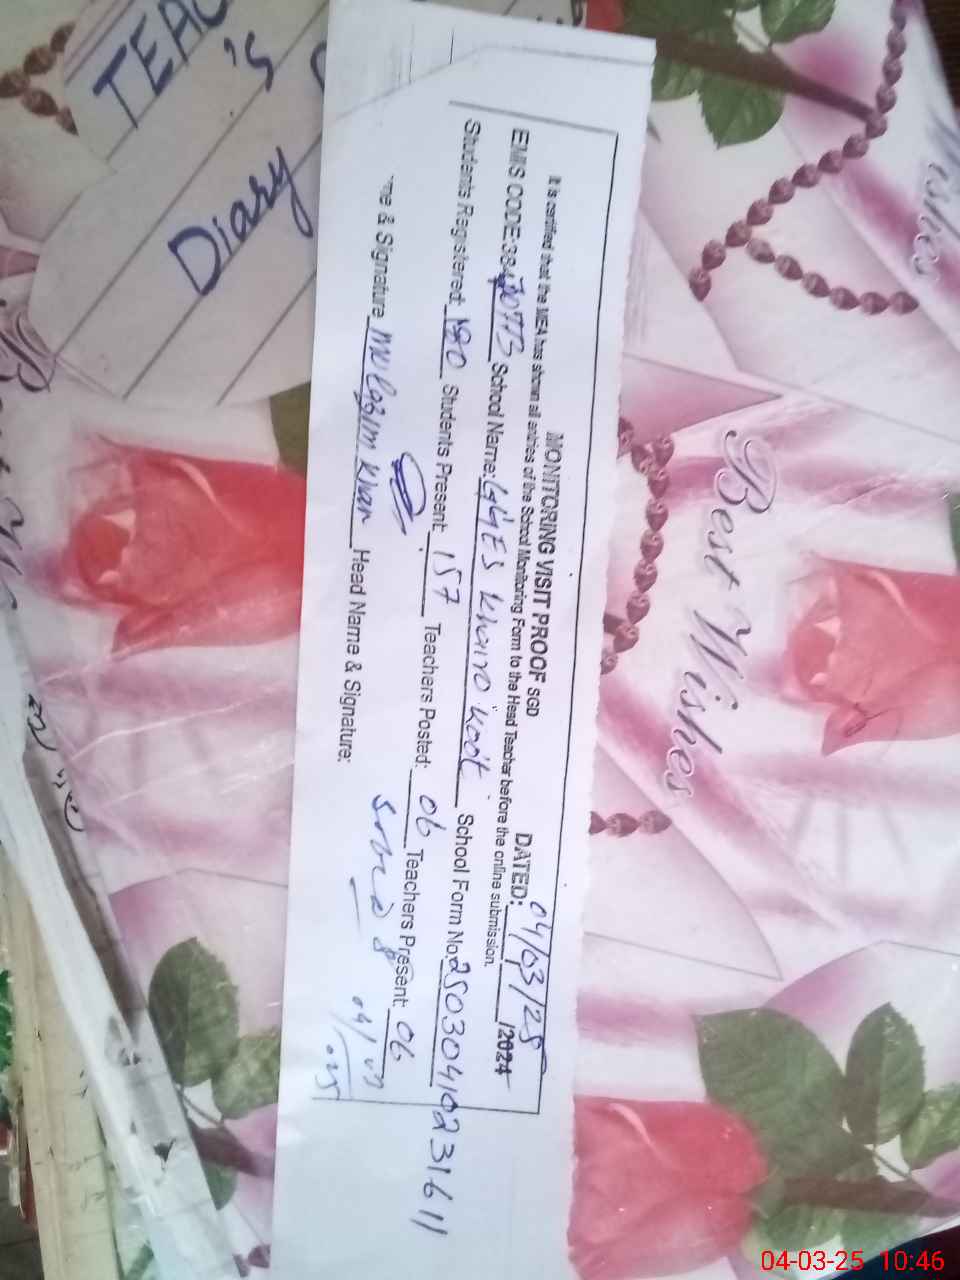 TEAC
's
Diary
MONITORING VISIT PROOF SGD DATED: 04/03/25 /2024
It is certified that the MEA has shown all entries of the School Monitoring Form to the Head Teacher before the online submission.
EMIS CODE:38470773 School Name: GGES Khairo Koot School Form No: 25030410231611
Students Registered: 180 Students Present: 157 Teachers Posted: 06 Teachers Present: 06
me & Signature Mulazim Khan Head Name & Signature:
Best Wishes
ishes
04-03-25 10:46